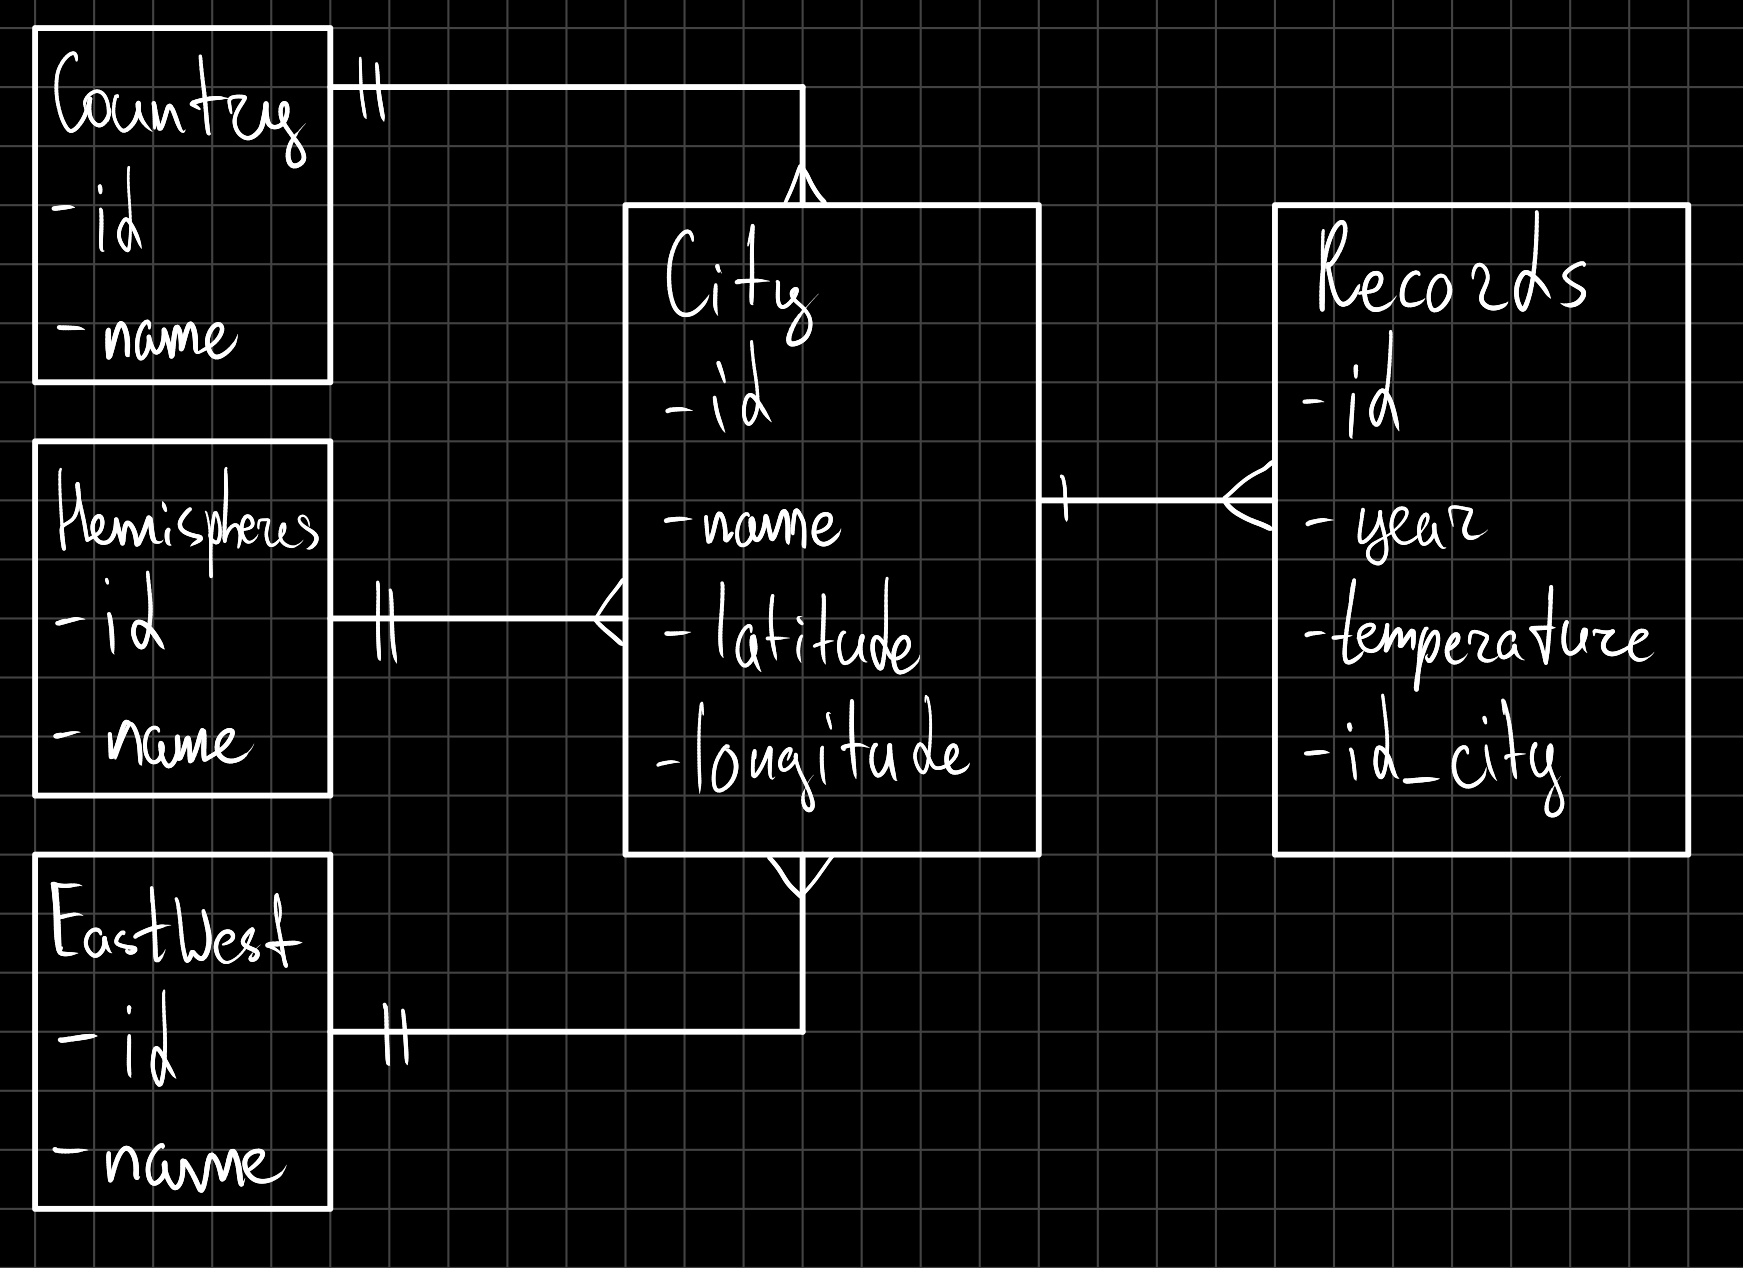 Country
- id
- name
Hemispheres
- id
- name
EastWest
- id
- name
City
- id
- name
- latitude
- longitude
Records
- id
- year
- temperature
- id_city